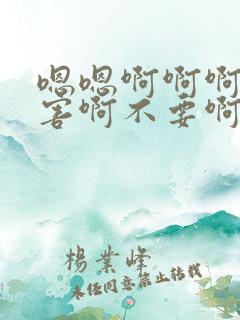 嗯嗯啊啊啊
害啊不要啊
楊業峰
未经同意禁止转载